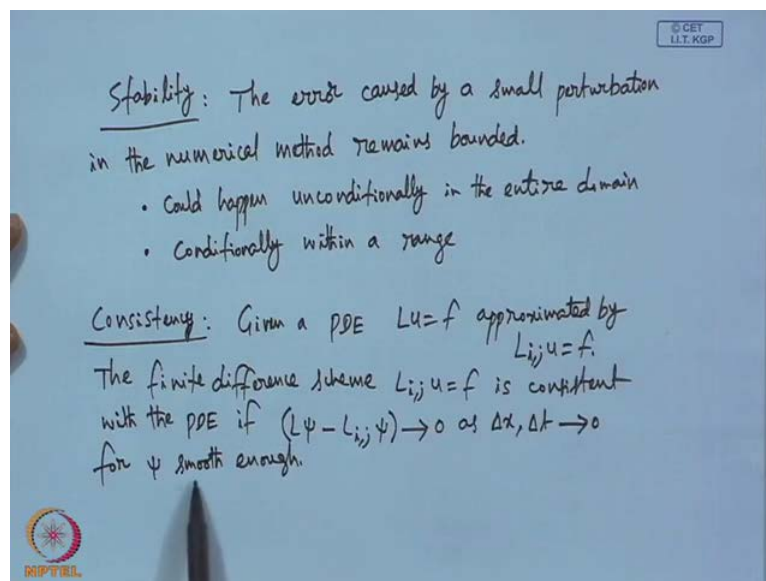 © CET
I.I.T. KGP
Stability : The error caused by a small perturbation
in the numerical method remains bounded.
• Could happen unconditionally in the entire domain
• Conditionally within a range
Consistency : Given a PDE Lu = f approximated by
Li,j u = f.
The finite difference scheme Li,j u = f is consistent
with the PDE if (Lψ – Li,j ψ) → 0 as Δx, Δt → 0
for ψ smooth enough.
NPTEL